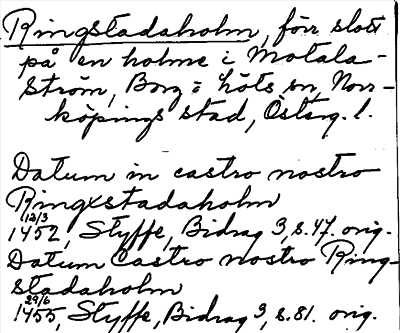 Ringstadaholm, förr slott
på en holme i Motala-
Ström, Borg = Löts sn, Norr-
köpings stad, Österg. l.
Datum in castro nostro
Ringxstadaholm
12/3
1452, Styffe, Bidrag 3, s. 47. orig.
Datum Castro nostro Ring-
stadaholm
29/6
1455, Styffe, Bidrag 3, s. 81. orig.